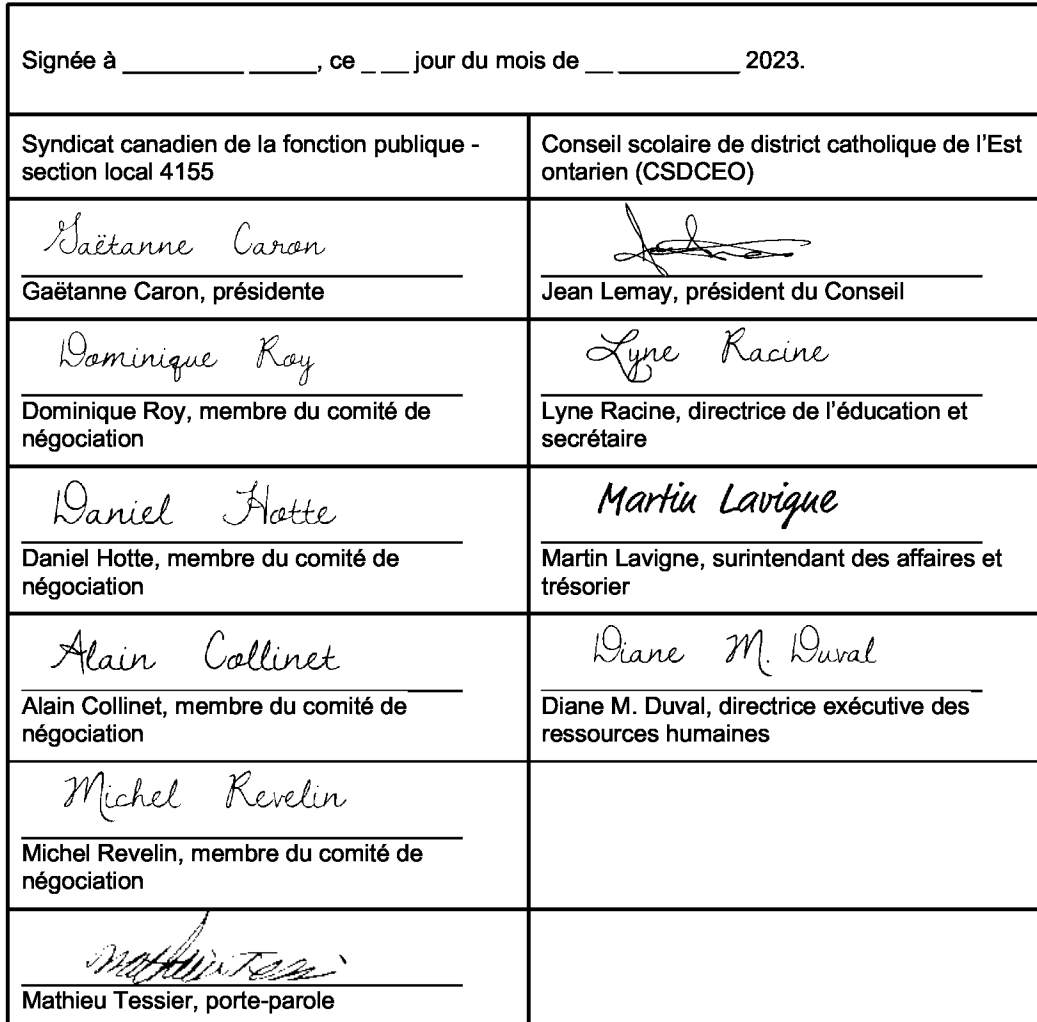 Signée à __________ _____, ce _ __ jour du mois de __ __________ 2023.
Syndicat canadien de la fonction publique -
section local 4155
Conseil scolaire de district catholique de l'Est
ontarien (CSDCEO)
Gaëtanne Caron
Gaëtanne Caron, présidente
Jean Lemay, président du Conseil
Dominique Roy
Dominique Roy, membre du comité de
négociation
Lyne Racine
Lyne Racine, directrice de l'éducation et
secrétaire
Daniel Hotte
Daniel Hotte, membre du comité de
négociation
Martin Lavigne
Martin Lavigne, surintendant des affaires et
trésorier
Alain Collinet
Alain Collinet, membre du comité de
négociation
Diane M. Duval
Diane M. Duval, directrice exécutive des
ressources humaines
Michel Revelin
Michel Revelin, membre du comité de
négociation
Mathieu Tessier, porte-parole